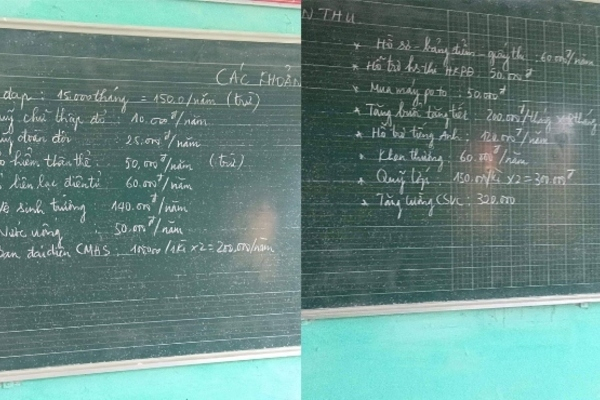 CÁC KHOẢN
đạp : 15.000 tháng = 150.0/năm (trừ)
chữ thập đỏ : 10.000đ/năm
đoàn đội : 25.000đ/năm
hiểm thân thể : 50.000đ/năm (trừ)
liên lạc điện tử : 60.000đ/năm
sinh trường : 140.000đ/năm
Nước uống : 50.000đ/năm
đại diện CMHS : 100.000/1kì x 2 = 200.000/năm
THU
* Hồ sơ - bảng điểm - giấy thi : 60.000đ/năm
* Hỗ trợ hs thi : 50.000đ
* Mua máy photo : 50.000đ
* Tăng buổi tăng tiết : 200.000đ/tháng tháng
* Hỗ trợ tiếng Anh : 120.000đ/năm
* Khen thưởng : 60.000đ/năm
* Quỹ lớp : 150.000đ/kì x 2 = 300.000đ
* Tăng cường CSVC : 320.000